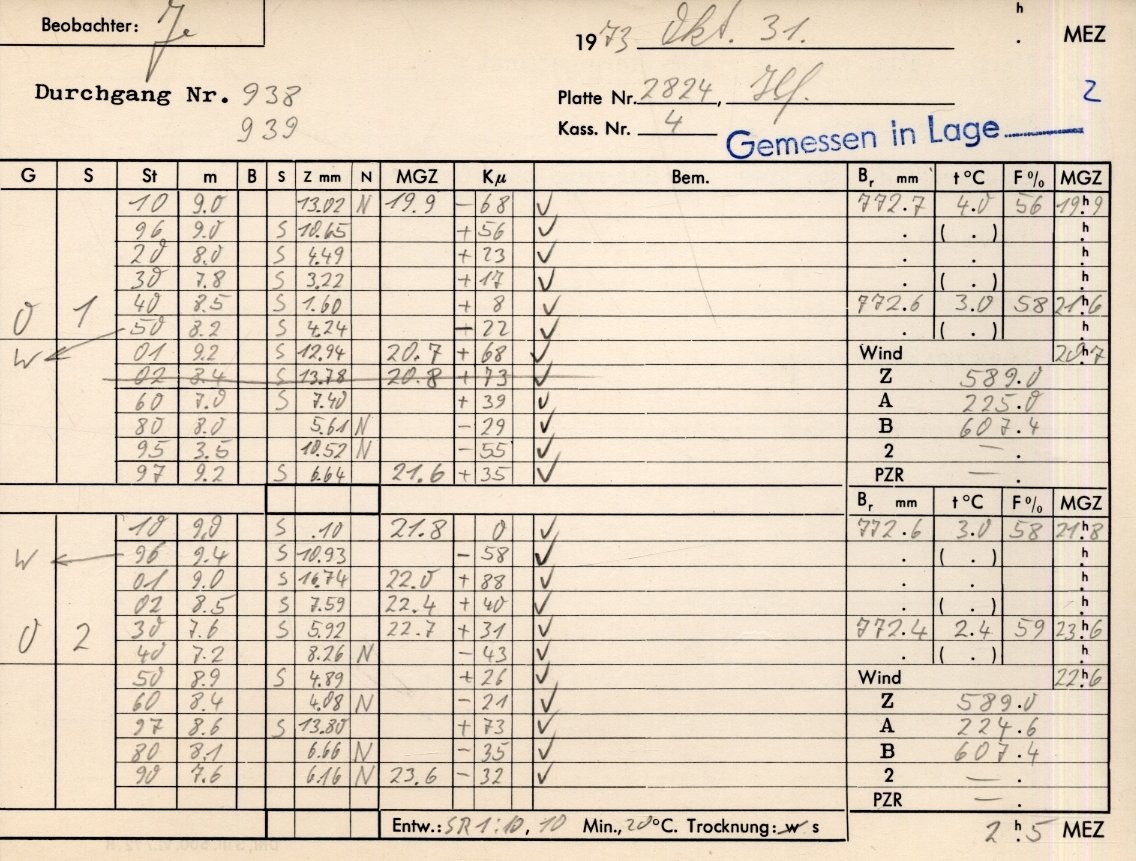 Beobachter: Je
h
1973 Okt. 31. . MEZ
Durchgang Nr. 938
939
Platte Nr. 2824,
2
Kass. Nr. 4
Gemessen in Lage
G S St m B S Z mm N MGZ Kμ Bem. Br mm t °C F % MGZ
10 9.0 13.02 N 19.9 - 68 ✓ 772.7 4.0 56 19h9
96 9.0 S 10.65 + 56 ✓ . ( . ) h
20 8.0 S 4.49 + 23 ✓ . . h
30 7.8 S 3.22 + 17 ✓ . ( . ) h
O 1 40 8.5 S 1.60 + 8 ✓ 772.6 3.0 58 21h6
50 8.2 S 4.24 22 ✓ . ( . ) h
W 01 9.2 S 12.94 20.7 + 68 ✓ Wind 20h7
02 8.4 S 13.78 20.8 + 73 ✓ Z 589.0
60 7.0 S 7.40 + 39 ✓ A 225.0
80 8.0 5.61 N - 29 ✓ B 607.4
95 3.5 10.52 N - 55 ✓ 2 — .
97 9.2 S 6.64 21.6 + 35 ✓ PZR — .
Br mm t °C F % MGZ
10 9.0 S .10 21.8 0 ✓ 772.6 3.0 58 21h8
W 96 9.4 S 10.93 - 58 ✓ . ( . ) h
01 9.0 S 16.74 22.0 + 88 ✓ . . h
02 8.5 S 7.59 22.4 + 40 ✓ . ( . ) h
O 2 30 7.6 S 5.92 22.7 + 31 ✓ 772.4 2.4 59 23h6
40 7.2 8.26 N - 43 ✓ . ( . ) h
50 8.9 S 4.89 + 26 ✓ Wind 22h6
60 8.4 4.08 N - 21 ✓ Z 589.0
97 8.6 S 13.80 + 73 ✓ A 224.6
80 8.1 6.66 N - 35 ✓ B 607.4
90 7.6 6.16 N 23.6 - 32 ✓ 2 — .
PZR — .
Entw.: SR 1:10, 10 Min., 20 °C. Trocknung: w s 2h5 MEZ